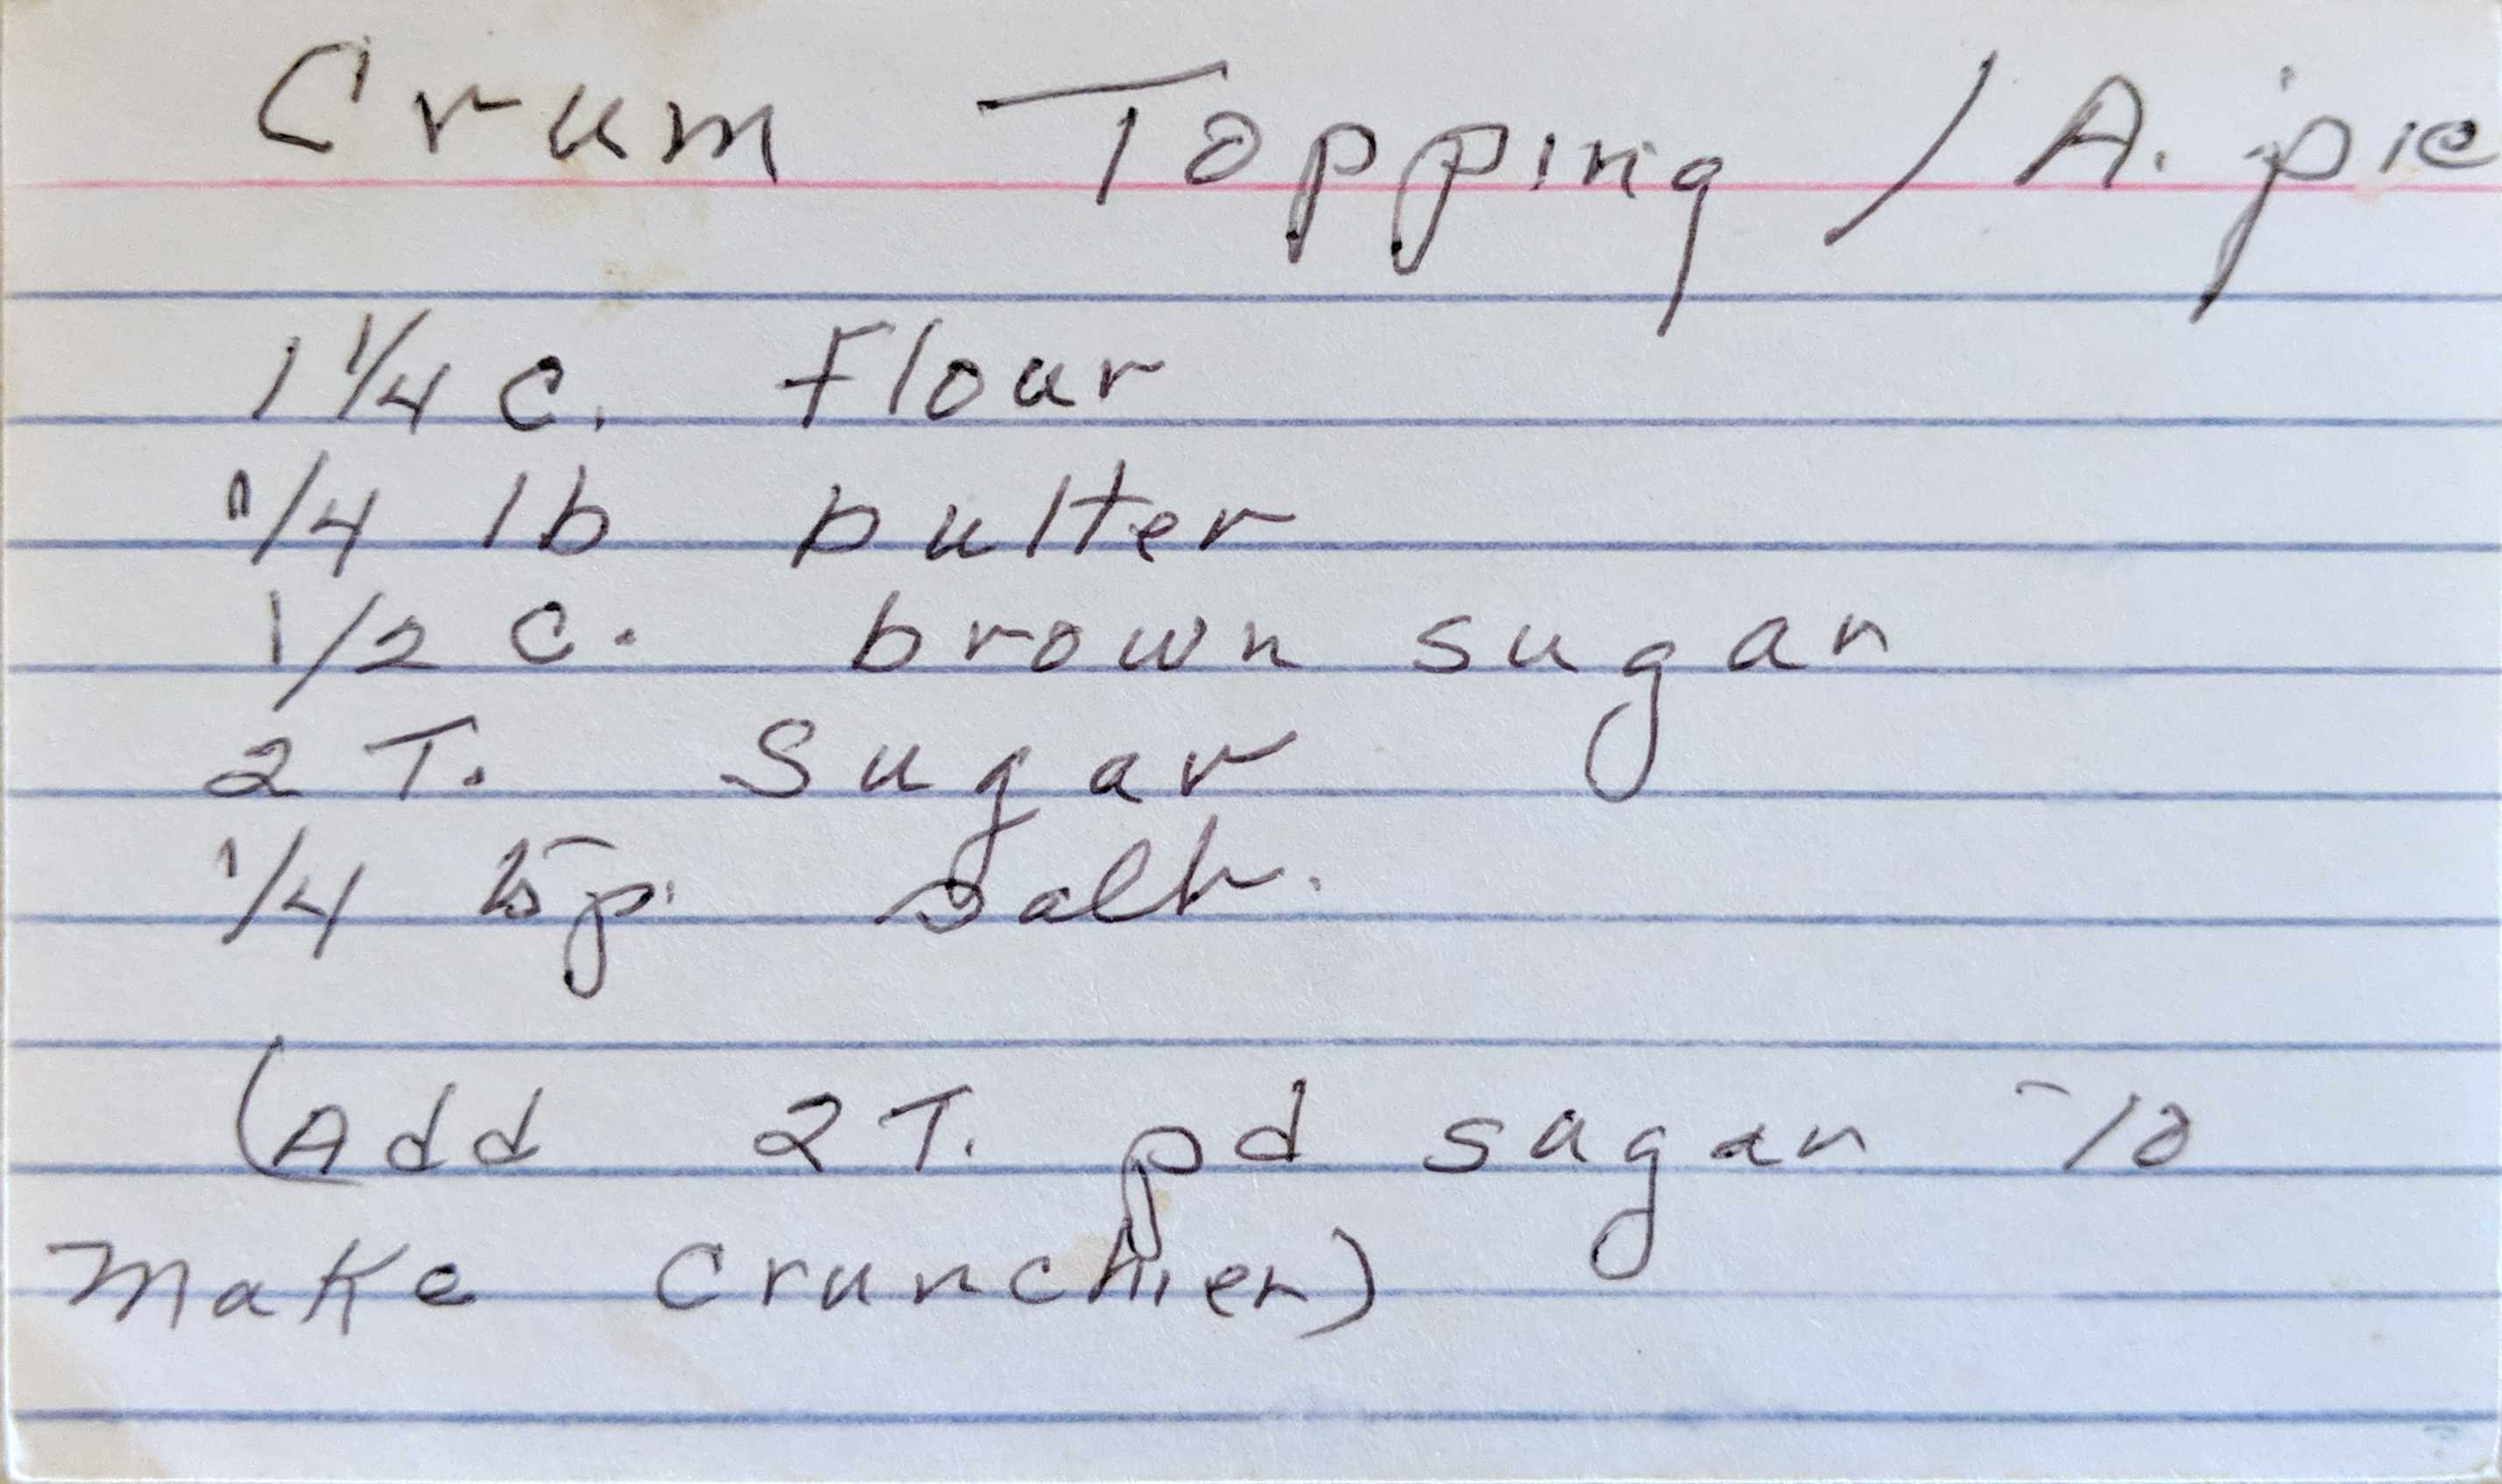 Crum Topping / A. pie
1 1/4 c. flour
1/4 lb butter
1/2 c. brown sugar
2 T. sugar
1/4 tsp. salt.
(Add 2 T. pd sugar to
make crunchier)